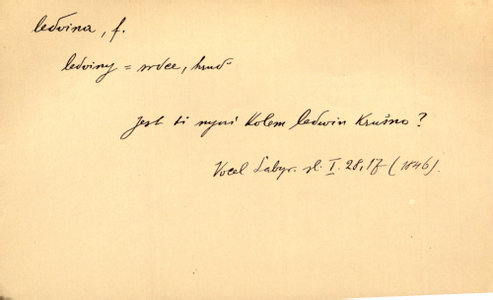 ledvina, f.
ledviny = srdce, hruď
Jest ti nyní kolem ledwin krušno?
Vocel Labyr. sl. I. 28, 17 (1846).